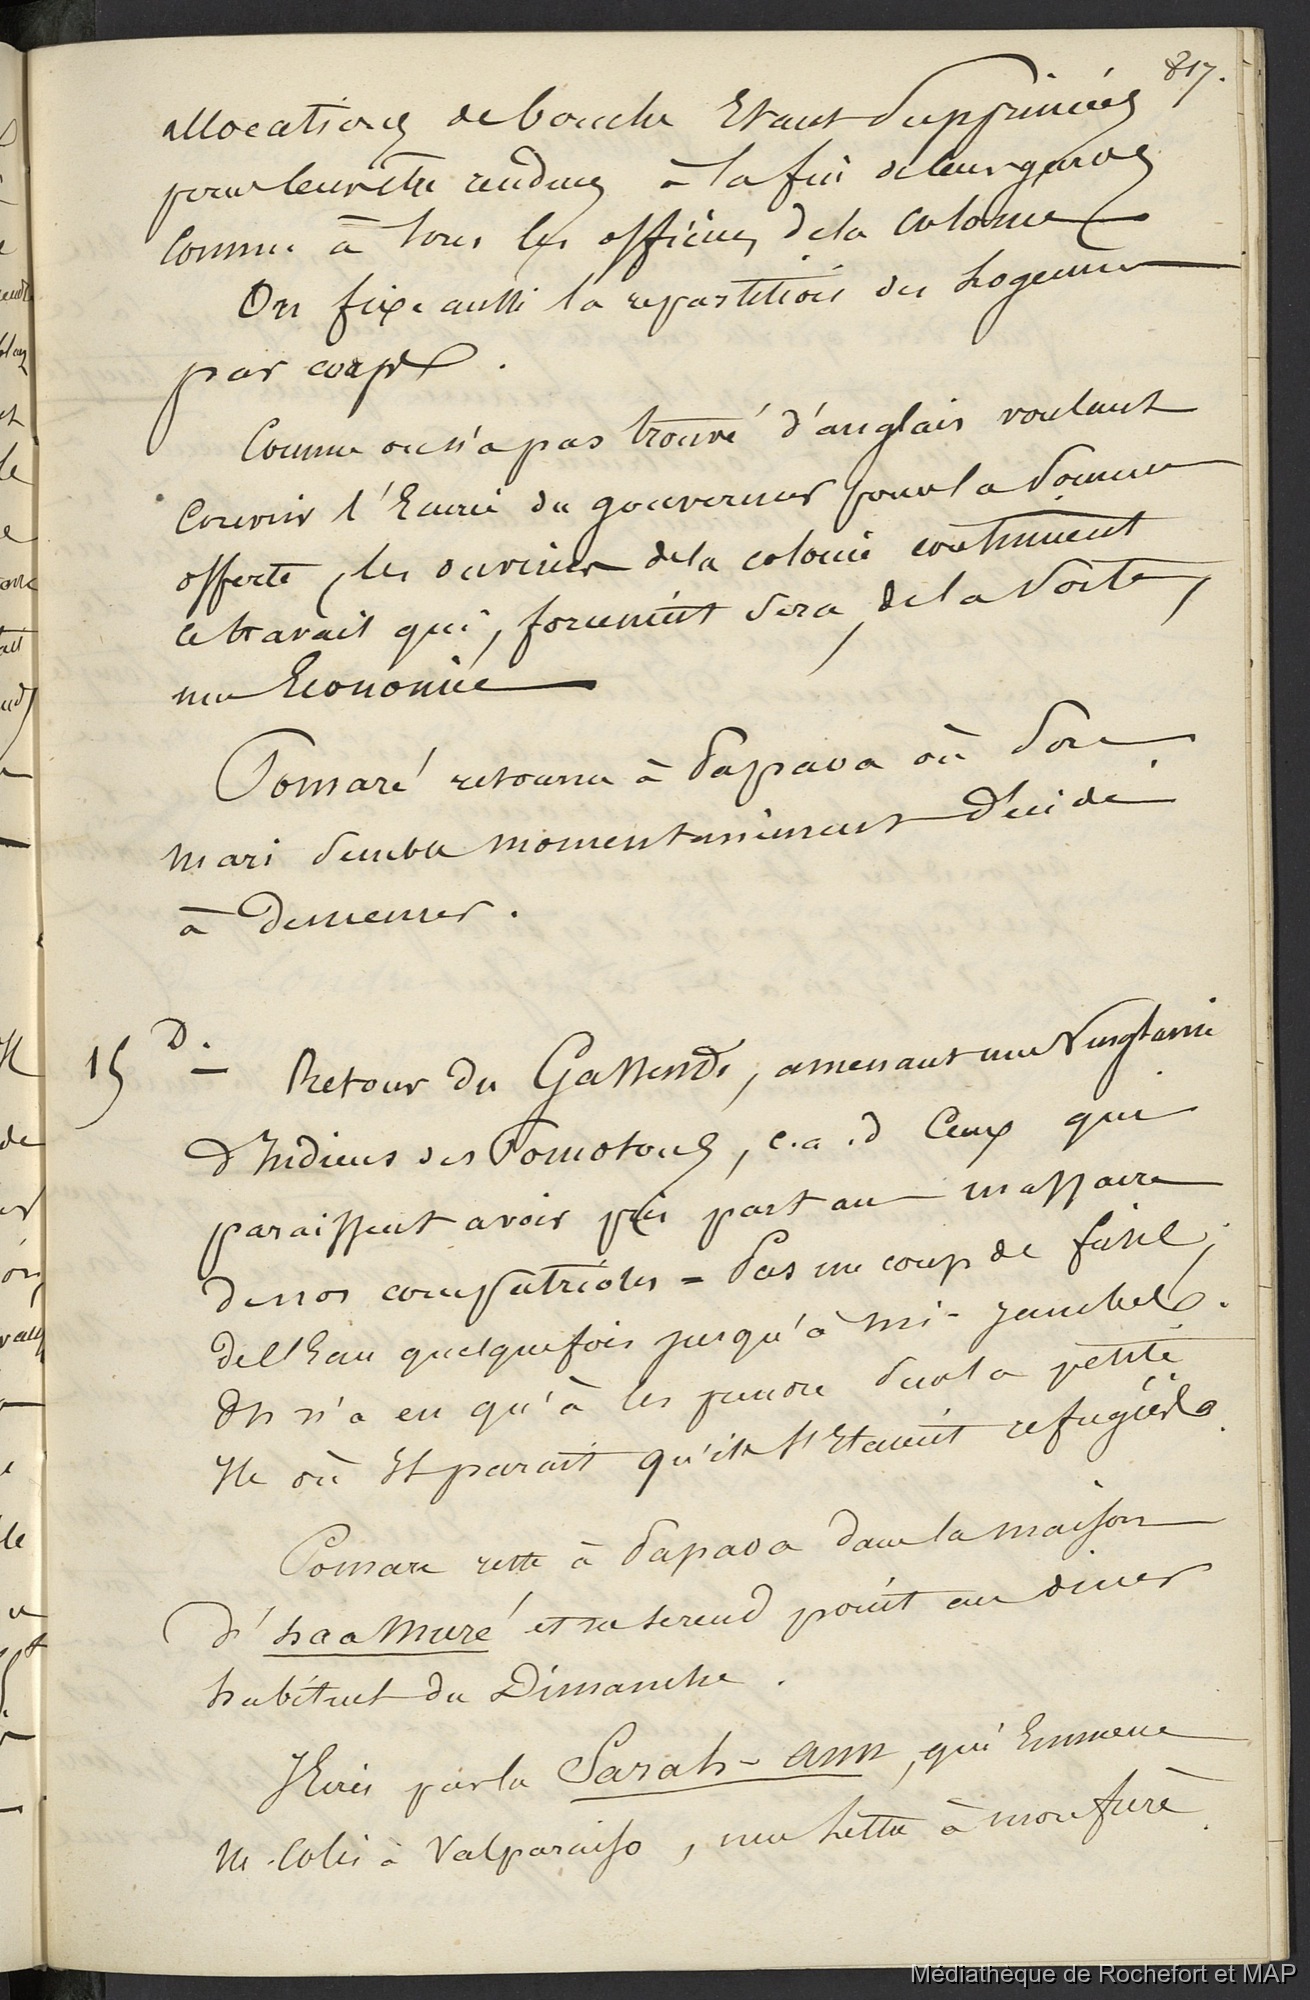 817.
allocations de bouche Etant Supprimées
pour leur être rendues à la fin de leurs gardes
Comme à tous les officiers de la Colonie
On fixe aussi la repartition des Logements
par corps.
Comme on n'a pas trouvé d'anglais voulant
Couvrir l'Ecurie du gouverneur pour la Somme
offerte, les ouvriers de la colonie continuent
ce travail qui, forcement sera, de la Sorte,
une Economie
Pomaré retourne à Papaoa où Son
mari Semble momentanement décidé
à demeurer.
15 D. Retour du Gassendi, amenant une Vingtaine
d'Indiens des Pomotous, c.a.d Ceux qui
paraissent avoir pris part au massacre
de nos compatriotes = Pas un coup de fusil;
de l'Eau quelquefois jusqu'à mi-jambes.
On n'a eu qu'à les prendre Sur la petite
Ile où Il parait qu'ils s'Etaient refugiés.
Pomare reste à Papaoa dans la maison
d'haamuré et ne Se rend point au diner
habituel du Dimanche.
J'Ecris par la Sarah-ann, qui Emmene
M. Colin à Valparaiso, une Lettre à mon frère
Médiathèque de Rochefort et MAP